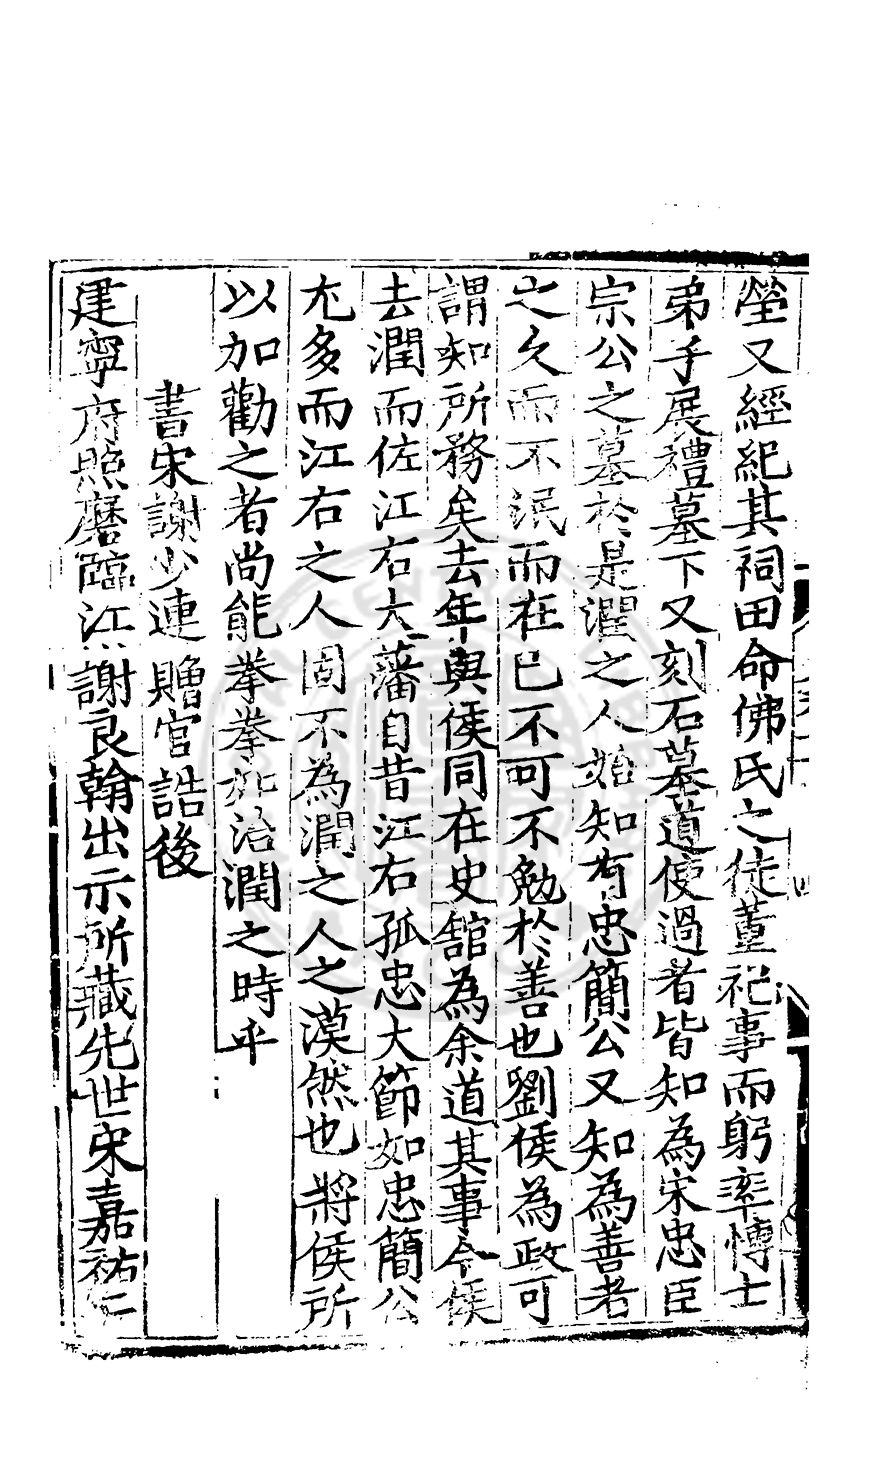 塋又經紀其祠田命佛氏之徒董祀事而躬率博士
弟子展禮墓下又刻石墓道使過者皆知為宋忠臣
宗公之墓於是潤之人始知有忠簡公又知為善者
之久而不泯而在已不可不勉於善也劉侯為政可
謂知所務矣去年與侯同在史館為余道其事今侯
去潤而佐江右大藩自昔江右孤忠大節如忠簡公
尤多而江右之人固不為潤之人之漠然也將侯所
以加勸之者尚能拳拳如治潤之時乎
書宋謝少連贈官誥後
建寧府照磨臨江謝良翰出示所藏先世宋嘉祐仁